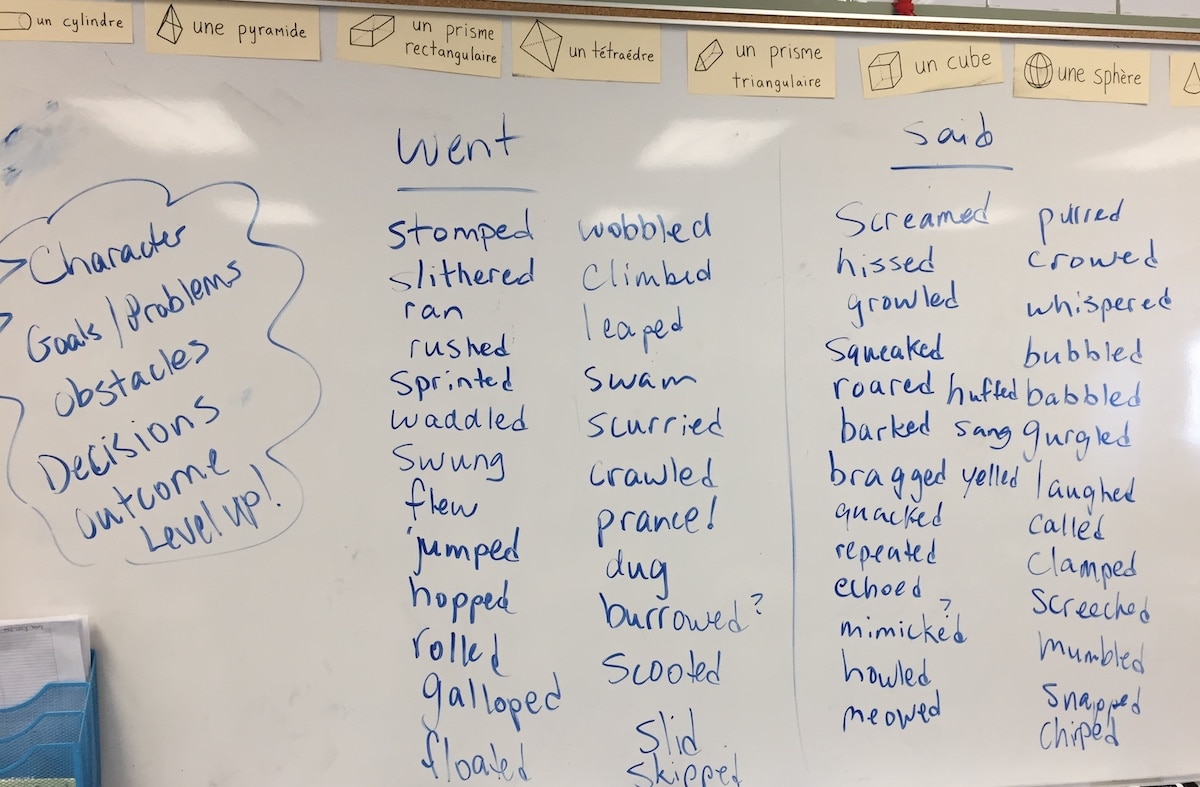 un cylindre
une pyramide
un prisme
rectangulaire
un tétraédre
un prisme
triangulaire
un cube
une sphère
Character
Goals/Problems
obstacles
Decisions
outcome
Level up!
went
stomped
slithered
ran
rushed
sprinted
waddled
swung
flew
jumped
hopped
rolled
galloped
floated
wobbled
climbed
leaped
swam
scurried
crawled
prance!
dug
burrowed?
scooted
slid
skipped
said
screamed
hissed
growled
squeaked
roared
barked
bragged
quacked
repeated
echoed
mimicked?
howled
meowed
huffed
sang
yelled
purred
crowed
whispered
bubbled
babbled
gurgled
laughed
called
clamped
screeched
mumbled
snapped
chirped